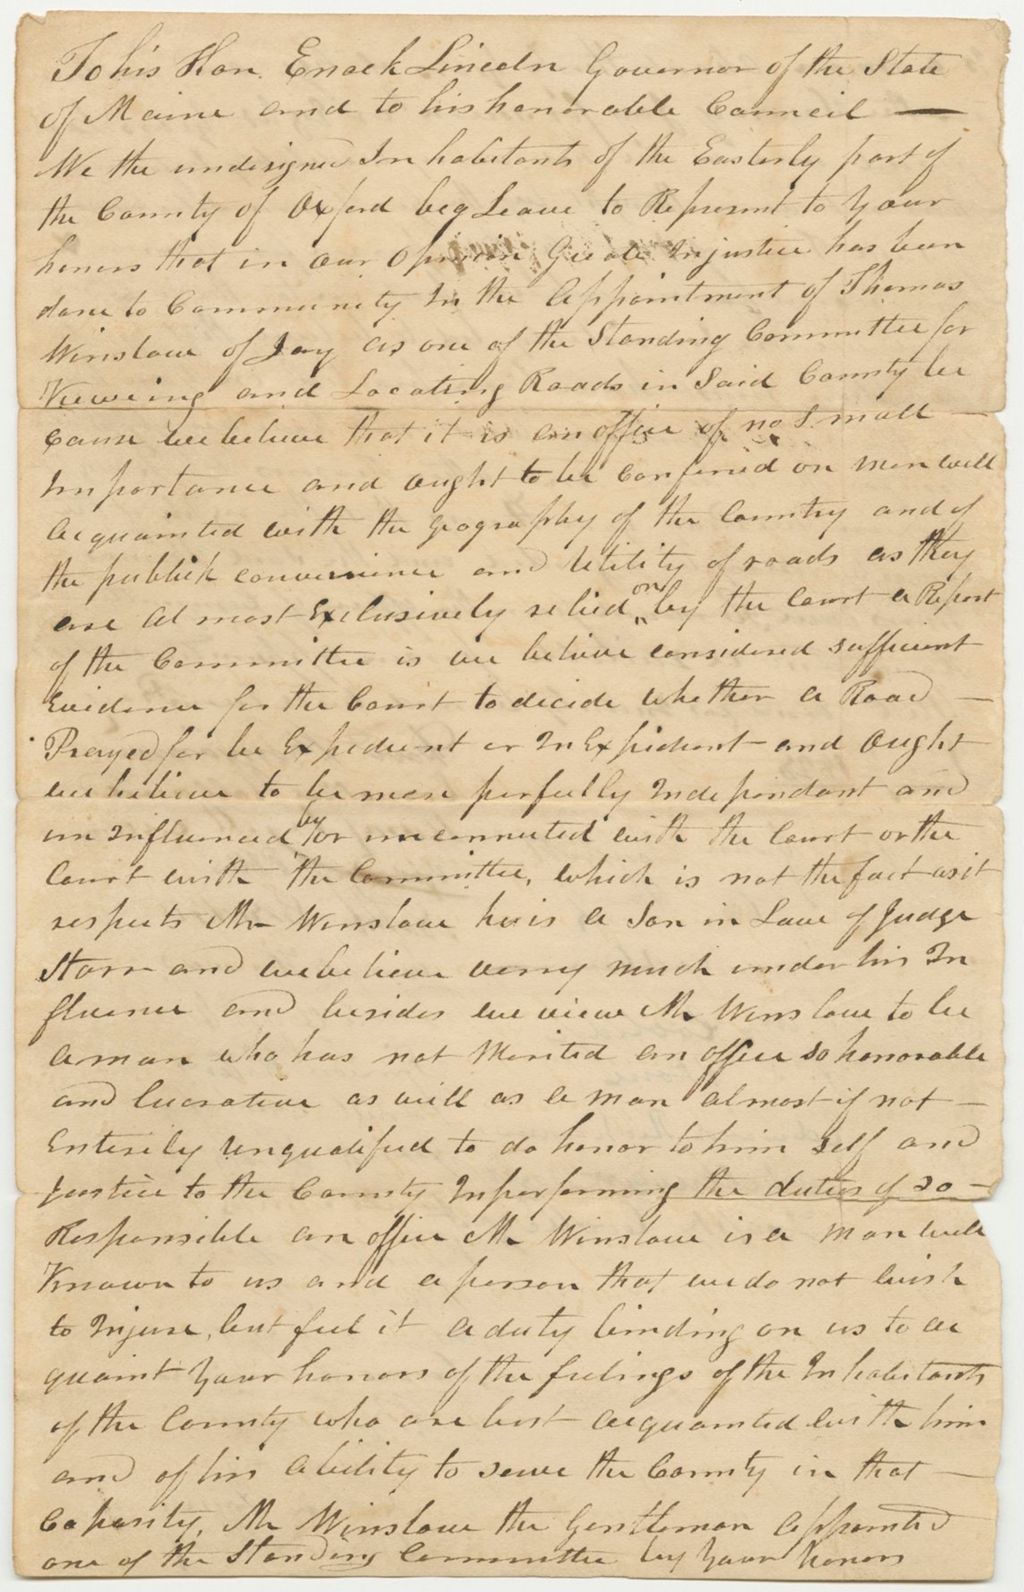 To his Hon. Enoch Lincoln Governor of the State
of Maine and to his honorable Council —
We the undersigned Inhabitants of the Easterly part of
the County of Oxford beg Leave to Represent to Your
honors that in our Opinion Greate Injustice has been
done to Community In the Appointment of Thomas
Winslow of Jay as one of the Standing Committee for
Viewing and Locating Roads in Said County be
cause we believe that it is an office of no Small —
Importance and ought to be Confered on men well
acquainted with the geography of the Country and of
the publick convenience and Utility of roads as they
are al most Exclusively relied on by the Court a Report
of the Committee is we believe considered sufficient
Evidence for the Court to decide whether a Road —
Prayed for be Expedient or InExpedient — and Ought
we believe to be men perfectly Independant and
un Influenced by or unconnected with the Court or the
Court with the Committee, which is not the fact as it
respects Mr Winslow he is a Son in Law of Judge
Starr and we believe verry much under his In
fluence and besides we view Mr Winslow to be
a man who has not Merited an office so honorable
and lucrative as well as a man almost if not —
Entirely Unqualified to do honor to him self and
justice to the County In performing the duties of so —
Responsible an office Mr Winslow is a man well
Known to us and a person that we do not wish
to Injure, but feel it a duty binding on us to ac
quaint Your honors of the feelings of the Inhabitants
of the County who are best acquainted with him
and of his ability to serve the County in that —
Capasity, Mr Winslow the Gentleman appointed
one of the Standing Committee by Your honors